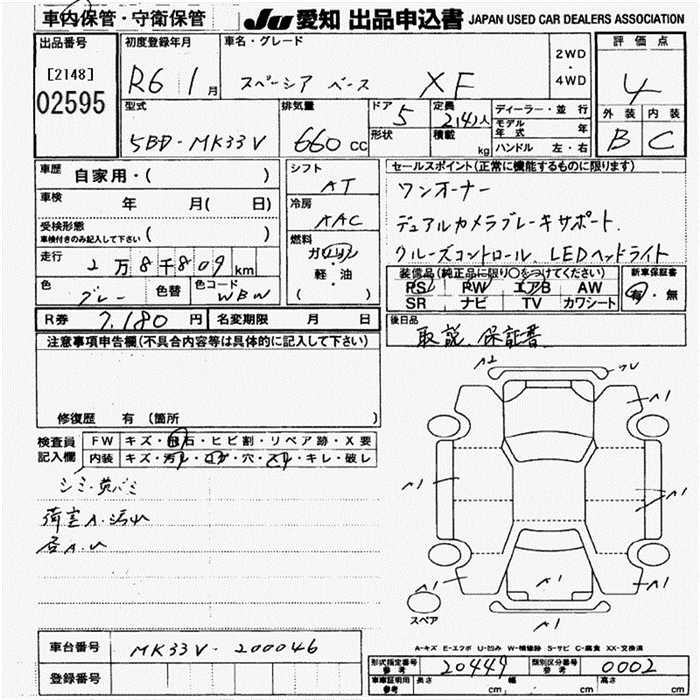 車内保管・守衛保管
JU 愛知 出品申込書 JAPAN USED CAR DEALERS ASSOCIATION
出品番号
[2148]
02595
初度登録年月
R6 1月
車名・グレード
スペーシア ベース XF
2WD・4WD
評価点
4
外装 内装
B C
型式
5BD-MK33V
排気量
660 cc
ドア 5
形状
定員 2(4)人
積載 kg
ディーラー・並行
モデル年式 年
ハンドル 左・右
車歴
自家用・( )
車検 年 月( 日)
受検形態
車検付きのみ記入して下さい ( )
走行
2万8千809km
色 グレー 色替
色コード WBW
シフト
AT
冷房
AAC
燃料
ガソリン
軽・油
( )
セールスポイント(正常に機能するものに限ります)
ワンオーナー
デュアルカメラブレーキサポート.
クルーズコントロール、LEDヘッドライト
装備品(純正品に限り○をつけてください)
PS PW エアB AW
SR ナビ TV カワシート
新車保証書
有・無
R券 7,180円
名変期限 月 日
後日品
取説、保証書
注意事項申告欄(不具合内容等は具体的に記入して下さい)
修復歴 有(箇所 )
検査員記入欄
FW キズ・飛石・ヒビ割・リペア跡・X要
内装 キズ・汚レ・コゲ・穴・スレ・キレ・破レ
荷室A.汚れ
A2
A1
A1
A1
A1
A1
A1
A1
A1
スペア
A-キズ E-エクボ U-凹み W-補修跡 S-サビ C-腐食 XX-交換済
車台番号 MK33V-200046
登録番号
形式指定番号 参考 20449
類別区分番号 参考 0002
車庫証明用 参考 長さ cm 幅 cm 高さ cm